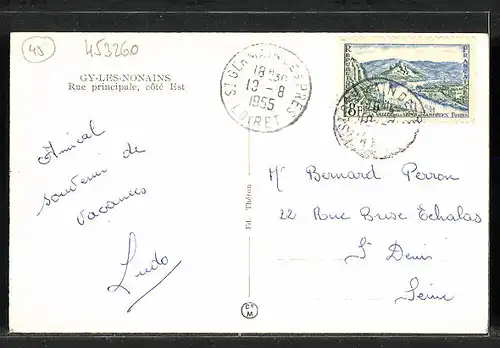 45
453260
GY-LES-NONAINS
Rue principale, côté Est
ST GERMAIN-LES-PRES
18H30
13-8
1955
LOIRET
REPUBLIQUE FRANÇAISE
8F
POSTES
Amical
souvenir de
vacances
Ludo
Ed. Théron
CM
Mr Bernard Perron
22 Rue Brise Echalas
St Denis
Seine